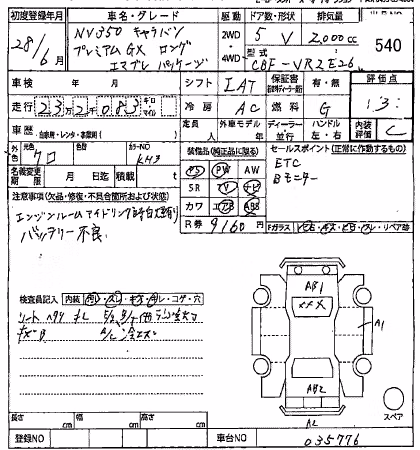 初度登録年月 車名・グレード 駆動 ドア数・形状 排気量
28/6月 NV350 キャラバン プレミアムGX ロング エマブレ パッケージ
2WD・4WD 5 V 2,000cc 540
型式 CBF-VR2E26
車検 年 月 シフト IAT 保証書 有・無 評価点
走行 232,083 キロ マイル 冷房 AC 燃料 G 3
車歴 自家用・レンタ・事業用( ) 定員 人 外車モデル 年 ディーラー・並行 ハンドル 左・右 内装評価 C
外色 元色 クロ 色替 カラーNO KH3
装備品(純正品に限る) セールスポイント(正常に作動するもの)
PS PW AW ETC
SR TV ナビ Bモニター
カワ エアB ABS
名義変更期限 月 日迄 積載 t
R券 9160 円 Fガラス
注意事項(欠品・修復・不具合箇所および状態)
エンジンルーム アイドリング時白煙有り
バッテリー不良
検査員記入 内装 コゲ・穴
シート ヘタリ
キズ
AB1
XFX
A1
AB2
A2
スペア
長さ cm 幅 cm 高さ cm
登録NO 車台NO 035776